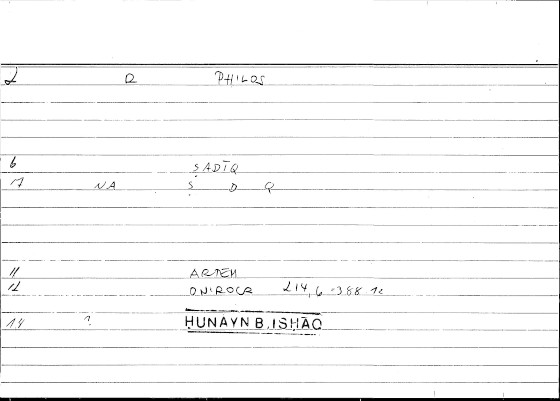 2 Q PHILOS
6 ṢADĪQ
17 NA Ṣ D Q
11 ARTEM
12 ONIROCR 214,6-388
14 ? HUNAYN B. ISHĀQ